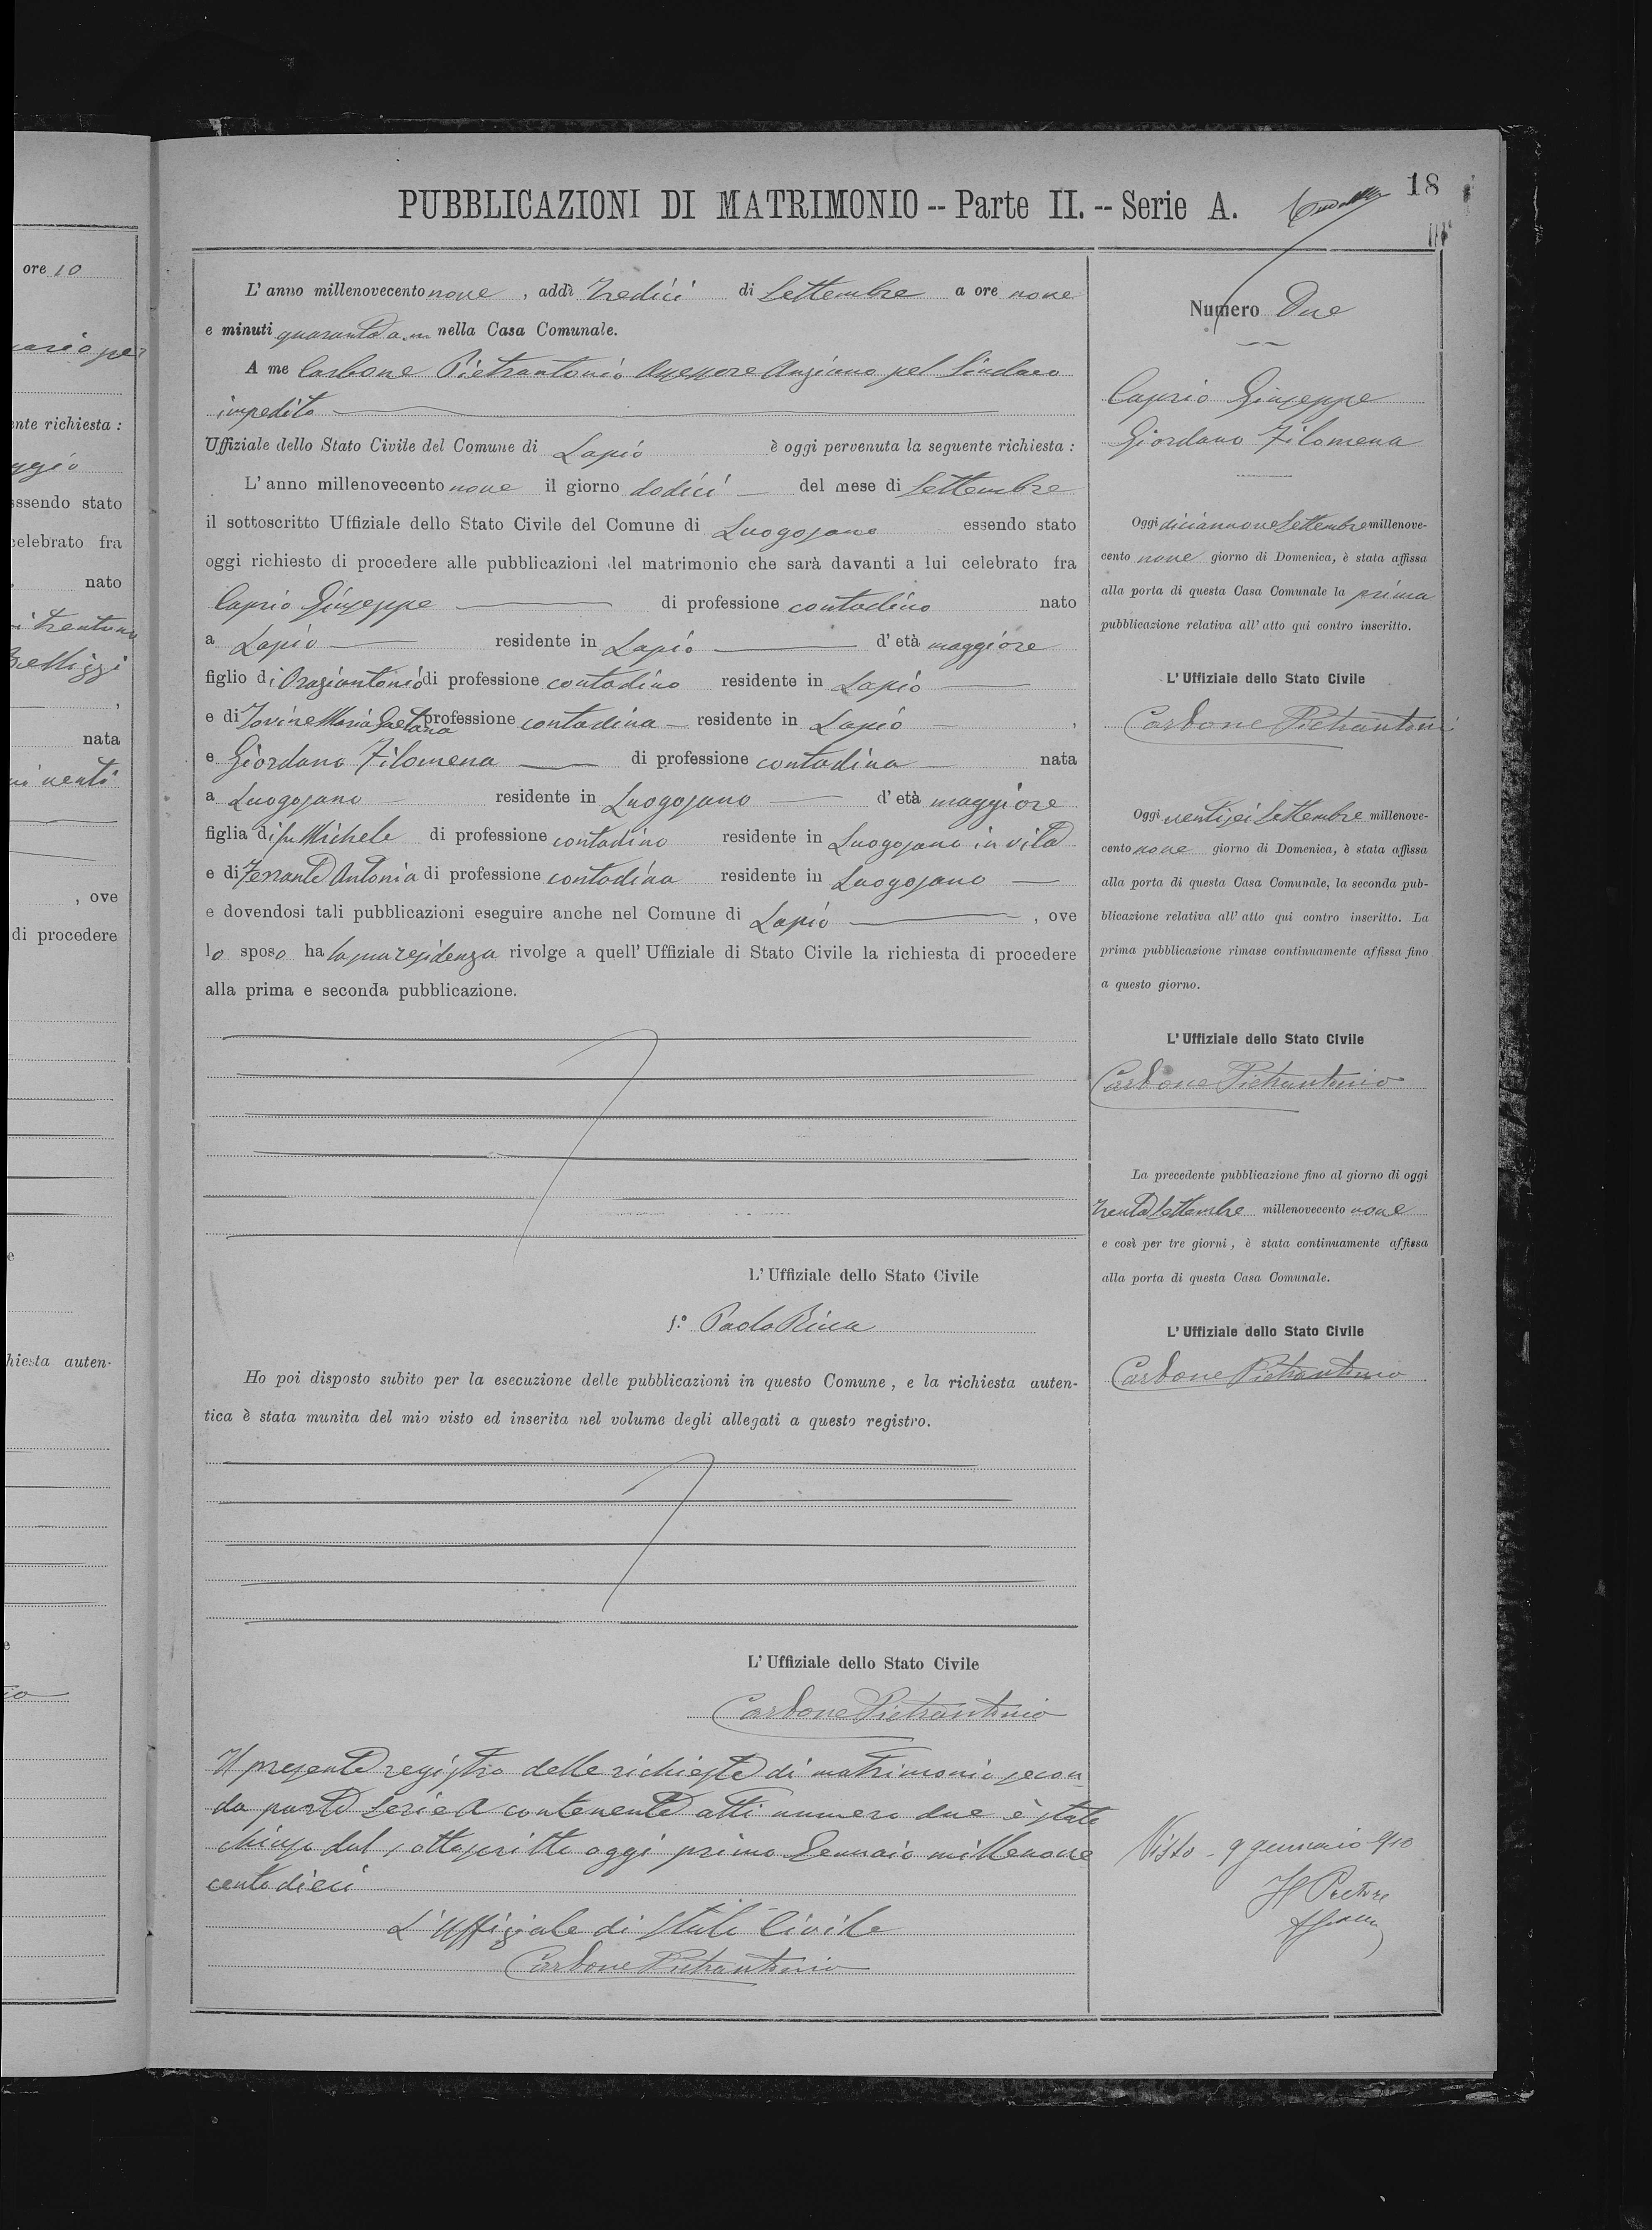 ore 10
nte richiesta :
ggio
ssendo stato
celebrato fra
nato
Bellizzi
nata
venti
, ove
di procedere
hiesta auten-
18
PUBBLICAZIONI DI MATRIMONIO -- Parte II. -- Serie A.
L' anno millenovecento nove , addì Tredici di Settembre a ore nove
e minuti quaranta a.m. nella Casa Comunale.
A me Carbone Pietrantonio Assessore Anziano pel Sindaco
impedito
Uffiziale dello Stato Civile del Comune di Lapio è oggi pervenuta la seguente richiesta :
L' anno millenovecento nove il giorno dodici del mese di Settembre
il sottoscritto Uffiziale dello Stato Civile del Comune di Luogosano essendo stato
oggi richiesto di procedere alle pubblicazioni del matrimonio che sarà davanti a lui celebrato fra
Caprio Giuseppe di professione contadino nato
a Lapio residente in Lapio d' età maggiore
figlio di Oraziantonio di professione contadino residente in Lapio
e di Iovine Maria Gaetana professione contadina residente in Lapio ,
e Giordano Filomena di professione contadina nata
a Luogosano residente in Luogosano d' età maggiore
figlia di fu Michele di professione contadino residente in Luogosano in vita
e di Ferrante Antonia di professione contadina residente in Luogosano
e dovendosi tali pubblicazioni eseguire anche nel Comune di Lapio , ove
lo sposo ha la sua residenza rivolge a quell' Uffiziale di Stato Civile la richiesta di procedere
alla prima e seconda pubblicazione.
L' Uffiziale dello Stato Civile
f.º Paolo
Ho poi disposto subito per la esecuzione delle pubblicazioni in questo Comune, e la richiesta auten-
tica è stata munita del mio visto ed inserita nel volume degli allegati a questo registro.
L' Uffiziale dello Stato Civile
Carbone Pietrantonio
Il presente registro delle richieste di matrimonio secon
da parte Serie A contenente atti numero due è stato
chiuso dal sottoscritto oggi primo Gennaio millenove
cento dieci
L'Uffiziale di Stato Civile
Carbone Pietrantonio
Numero Due
Caprio Giuseppe
Giordano Filomena
Oggi diciannove Settembre millenove-
cento nove giorno di Domenica, è stata affissa
alla porta di questa Casa Comunale la prima
pubblicazione relativa all' atto qui contro inscritto.
L' Uffiziale dello Stato Civile
Carbone Pietrantoni
Oggi ventisei Settembre millenove-
cento nove giorno di Domenica, è stata affissa
alla porta di questa Casa Comunale, la seconda pub-
blicazione relativa all' atto qui contro inscritto. La
prima pubblicazione rimase continuamente affissa fino
a questo giorno.
L' Uffiziale dello Stato Civile
Carbone Pietrantonio
La precedente pubblicazione fino al giorno di oggi
Trenta Settembre millenovecento nove
e così per tre giorni, è stata continuamente affissa
alla porta di questa Casa Comunale.
L' Uffiziale dello Stato Civile
Carbone Pietrantonio
Visto - 9 gennaio 910
Il Pretore